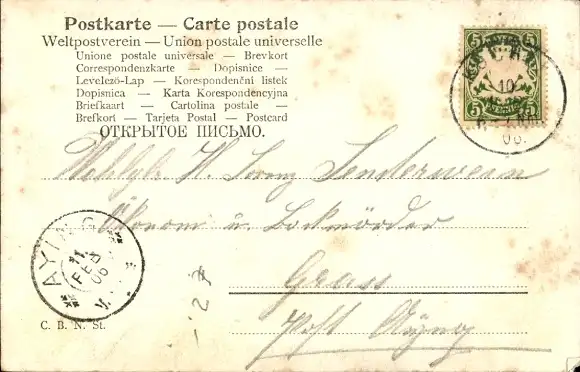 Postkarte — Carte postale
Weltpostverein — Union postale universelle
Unione postale universale — Brevkort
Correspondenzkarte — Dopisnice —
Levelezö-Lap — Korespondenční listek
Dopisnica — Karta Korespondencyjna
Briefkaart — Cartolina postale —
Brefkort — Tarjeta Postal — Postcard
ОТКРЫТОЕ ПИСЬМО.
5 5
5 5
10
06.
Wohlgb. H. Lorenz
Ökonom u.
Grass
Post Aying
AYING
11
FEB
06
V.
C. B. N. St.